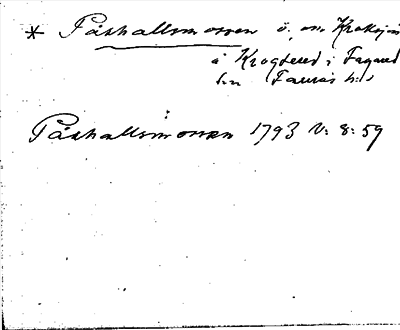 * Påskallsmossen ö. om Kroksjön
å Krogstund i Fagared
sn Faurås hd
Påskallsmossen 1793 V: 8: 59